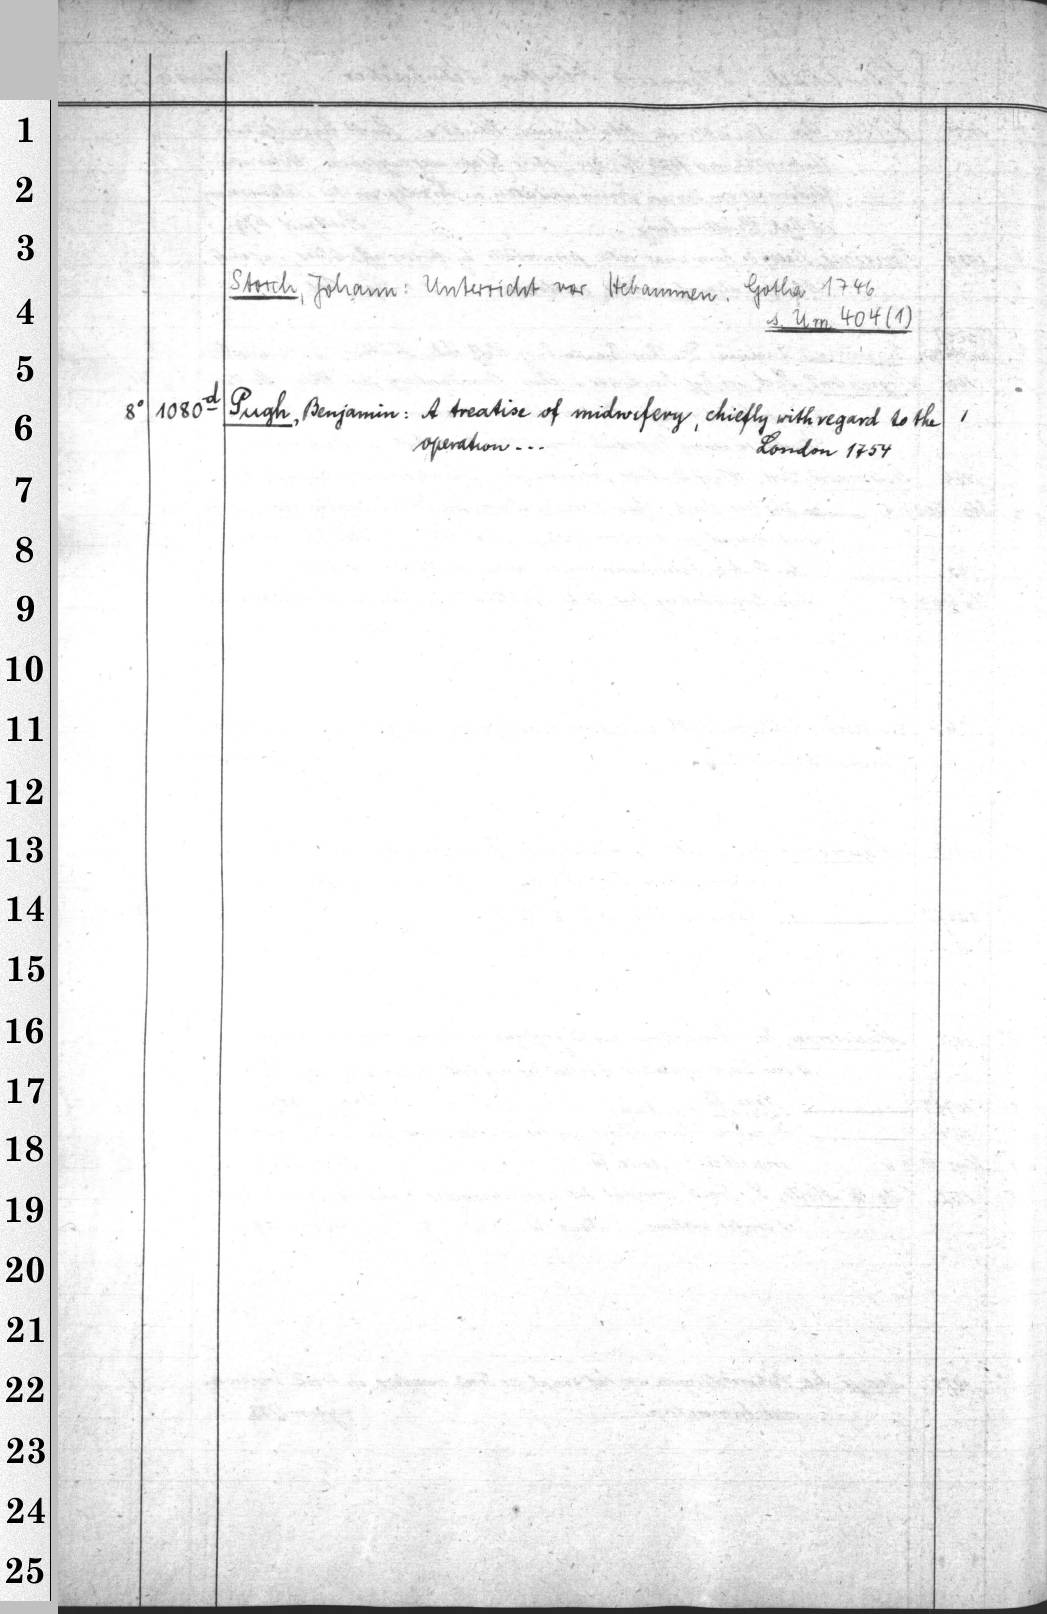 1
2
3
Storch, Johann: Unterricht vor Hebammen. Gotha 1746
4
s. Um 404(1)
5
8° 1080d Pugh, Benjamin: A treatise of midwifery, chiefly with regard to the 1
6
operation --- London 1754
7
8
9
10
11
12
13
14
15
16
17
18
19
20
21
22
23
24
25